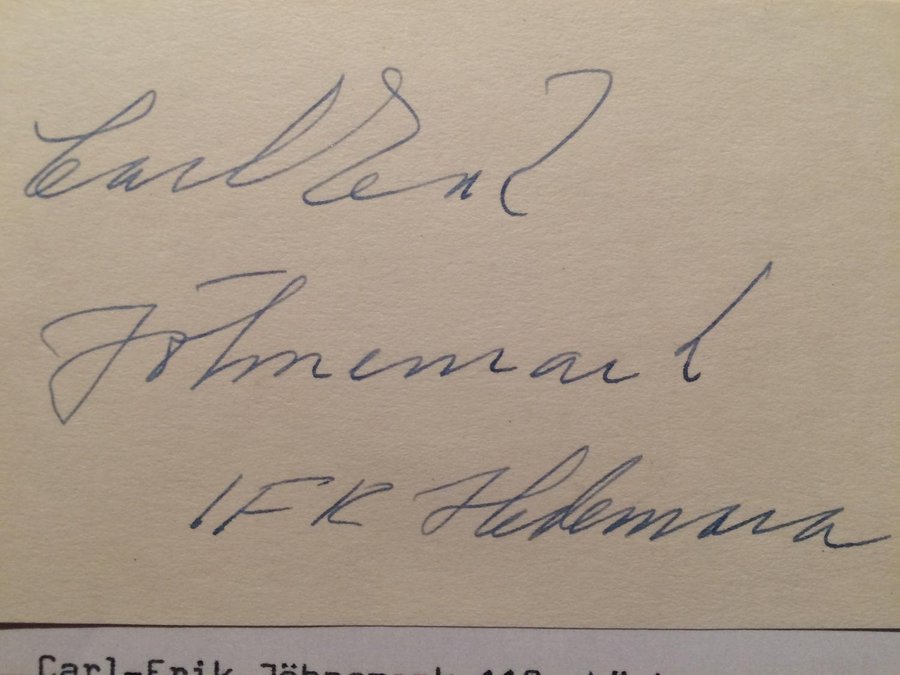 Carl Erik
Jöhnemark
IFK Hedemora
Carl-Erik Jöhnemark 110